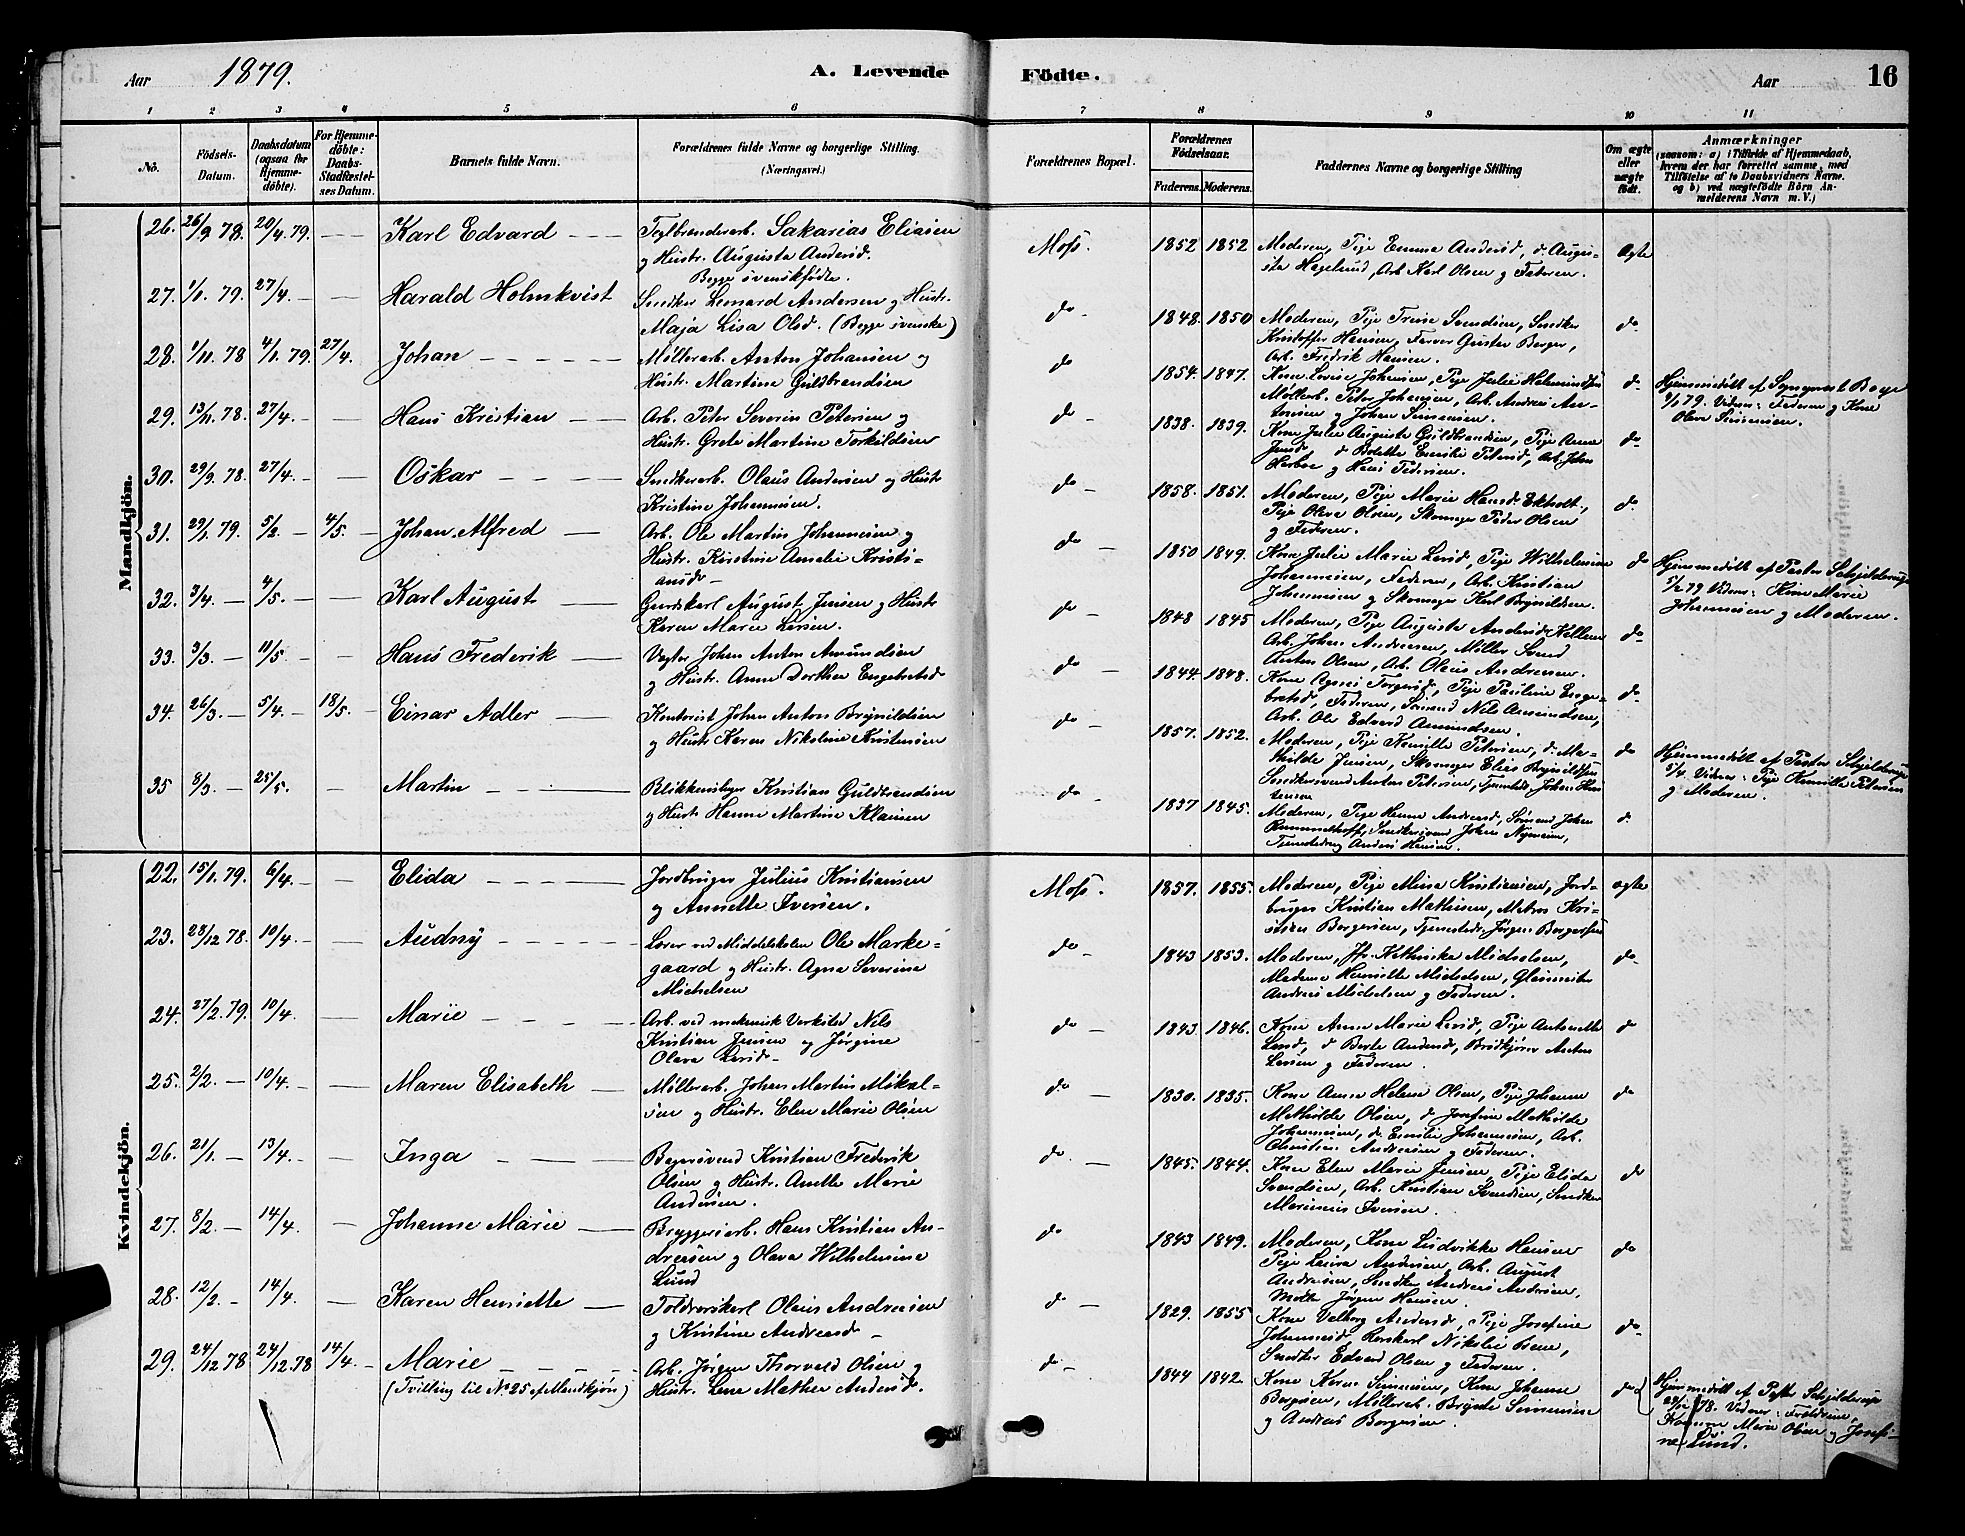 Aar 1879. A. Levende Födte. Aar 16
1 2 3 4 5 6 7 8 9 10 11
No. Födsels-Datum. Daabsdatum (ogsaa for Hjemme-döbte). For Hjemme-döbte: Daabs-Stadfæstel-ses Datum. Barnets fulde Navn. Forældrenes fulde Navne og borgerlige Stilling. (Næringsvei.) Forældrenes Bopæl. Forældrenes Födselsaar. Faderens. Moderens. Faddernes Navne og borgerlige Stilling Om ægte eller uægte födt. Anmærkninger
(saasom: a) i Tilfælde af Hjemmedaab, hvem der har forrettet samme, med Tilföielse af to Daabsvidners Navne, og b) ved uægtefödte Börn An-melderens Navn m. V.)
Mandkjön.
26. 26/9 78. 20/4 79. Karl Edvard Teglbrænderarb. Sakarias Eliasen
og Hustr. Augusta Andersd.
Begge svenskfödte.
Moss. 1852 1852 Moderen, Pige Emma Andersd, d. Augu-
sta Hagelund, Arb. Karl Olsen og Faderen. Ægte
27. 1/1. 79. 27/4. Harald Holmkvist Snedker Lenard Andersen og Hustr.
Maja Lisa Olsd. (Begge svenske)
do 1848. 1850 Moderen, Pige Trine Svendsen, Snedker
Kristoffer Hansen, Farver Gustav Berger,
Arb. Fredrik Hansen. do
28. 1/11. 78 4/1. 79. 27/4. Johan Möllerarb. Anton Johansen og
Hustr. Martine Guldbrandsen
do 1854. 1847. Kone Lovise Johansen, Pige Julie
Möllerarb. Peter Johansen, Arb. Andreas An-
tonsen og Johan Simensen. do Hjemmedöbt af Sognepræst Boye
4/1 79. Vidner: Faderen og Kone
Olava Simensen.
29. 13/11. 78. 27/4. Hans Kristian Arb. Peter Severin Petersen og
Hustr. Grete Martine Torkildsen
do 1838. 1839. Kone Julie Auguste Guldbrandsen, Pige Anne
Jensd, d Bolette Emilie Petersd, Arb. Johan
og Hans Pedersen. do
30. 29/9. 78. 27/4. Oskar Snedkerarb. Olaus Andersen og Hustr
Kristine Johannesen.
do 1858. 1851. Moderen, Pige Marie Hansd Ekholt,
Pige Olava Olsen, Skomager Peder Olsen
og Faderen. do
31. 29/1. 79. 5/2. 4/5. Johan Alfred Arb. Ole Martin Johannesen og
Hustr. Kristine Amalie Kristi-
ansd.
do 1850 1849. Kone Julie Marie Larsd, Pige Wilhelmine
Johannesen, Faderen, Arb. Kristian
Johannesen og Skomager Karl Brynildsen. do Hjemmedöbt af Pastor Schjelderup
5/2 79 Vidner: Kone Marie
Johannesen og Moderen.
32. 3/4. 4/5. Karl August Gaardskarl August Jensen og Hustr
Karen Marie Larsen.
do 1848 1845 Moderen, Pige Augusta Andersd
Arb. Johan Andreasen, Möller Svend
Anton Olsen, Arb. Olaus Andreasen. do
33. 3/3. 11/5. Hans Frederik Vægter Johan Anton Amundsen
og Hustr. Anne Dorthea Engebretsd
do 1844. 1848. Kone Agnes Torgersd, Pige Pauline Enge-
bretsd, Faderen, Sömand Nils Amundsen,
Arb. Ole Edvard Amundsen. do
34. 26/3. 5/4. 18/5. Einar Adler Kontorist Johan Anton Brynildsen
og Hustr Karen Nikoline Kristensen
do 1857. 1852. Moderen, Pige Kamilla Petersen, d. Ma-
thilde Jensen, Skomager Elias Brynildsen
Snedkersvend Anton Petersen, do Hjemmedöbt af Pastor Schjelderup
5/4. Vidner: Pige Kamilla Petersen
og Moderen.
35 8/3. 25/5. Martin Blikkenslager Kristian Guldbrandsen
og Hustr Hanne Martine Klausen
do 1837 1845. Moderen, Pige Hanna Andersd, Sömand Johan
Rummelhoff, Snedkersvend Johan Nymoen,
Anders Hansen. d.
Kvindekjön.
22. 15/1. 79. 6/4. Elida Jordbruger Julius Kristiansen
og Annette Iversen.
Moss. 1857. 1855. Moderen, Pige Mina Kristiansen, Jord-
bruger Kristian Mathisen, Matros Kri-
stian Borgersen, Jörgen Borgersen ægte
23. 28/12 78. 10/4. Audny Lærer ved Middelskolen Ole Marke-
gaard og Hustr. Agna Severine
Michelsen
do 1843 1853. Moderen, Jfr. Kathinka Michelsen,
Madame Henriette Michelsen, Glasmester
Andreas Michelsen og Faderen. do
24. 27/2. 79. 10/4. Marie Arb. ved mekanisk Verksted Nils
Kristian Jensen og Jörgine
Olava Larsd.
do 1843 1846. Kone Anne Marie Larsd, Pige Antonette
Lund, d Berte Andersd, Brödkjörer Anton
Larsen og Faderen. do
25. 2/2. 10/4. Maren Elisabeth Möllerarb. Johan Martin Mikal-
sen og Hustr. Elen Marie Olsen
do 1830. 1835. Kone Anne Helene Olsen, Pige Johanne
Mathilde Olsen, d Josefine Mathilde
Johannesen, d. Emilie Johannesen, Arb.
Christian Andersen og Faderen. do
26. 21/1. 13/4. Inga Bagersvend Kristian Frederik
Olsen og Hustr. Anette Marie
Andersen.
do 1845. 1844. Kone Elen Marie Jensen, Pige Elida
Svendsen, Arb. Kristian Svendsen, Snedker
Marinius Iversen. do
27. 8/2. 14/4. Johanne Marie Bryggeriarb. Hans Kristian An-
dreasen og Olava Wilhelmine
Lund
do 1843 1849. Moderen, Kone Ludvikke Hansen
Pige Laura Andersen, Arb. August
Andresen, Snedker Andreas Andersen,
Jörgen Hansen. do
28. 12/2. 14/4. Karen Henriette Toldrorskarl Olaus Andreasen
og Kristine Andreasd.
do 1829. 1855 Kone Valborg Andersd, Pige Josefine
Johannesd, Rorskarl Nikolai Bene,
Snedker Edvard Olsen og Faderen. do
29. 24/12 78 24/12. 78 14/4. Marie
(Tvilling til No 25 af Mandkjön) Arb. Jörgen Thorvald Olsen og
Hustr. Lene Mathea Andersd.
do 1844 1842. Kone Karen Simensen, Kone Johanne
Borgersen, Möllerarb. Brynte Simensen
og Andreas Borgersen. do Hjemmedöbt af Pastor Schjelderup
24/12 78. Vidner: Forældrene,
Konerne Marie Olsen og Josefi-
ne Lund.